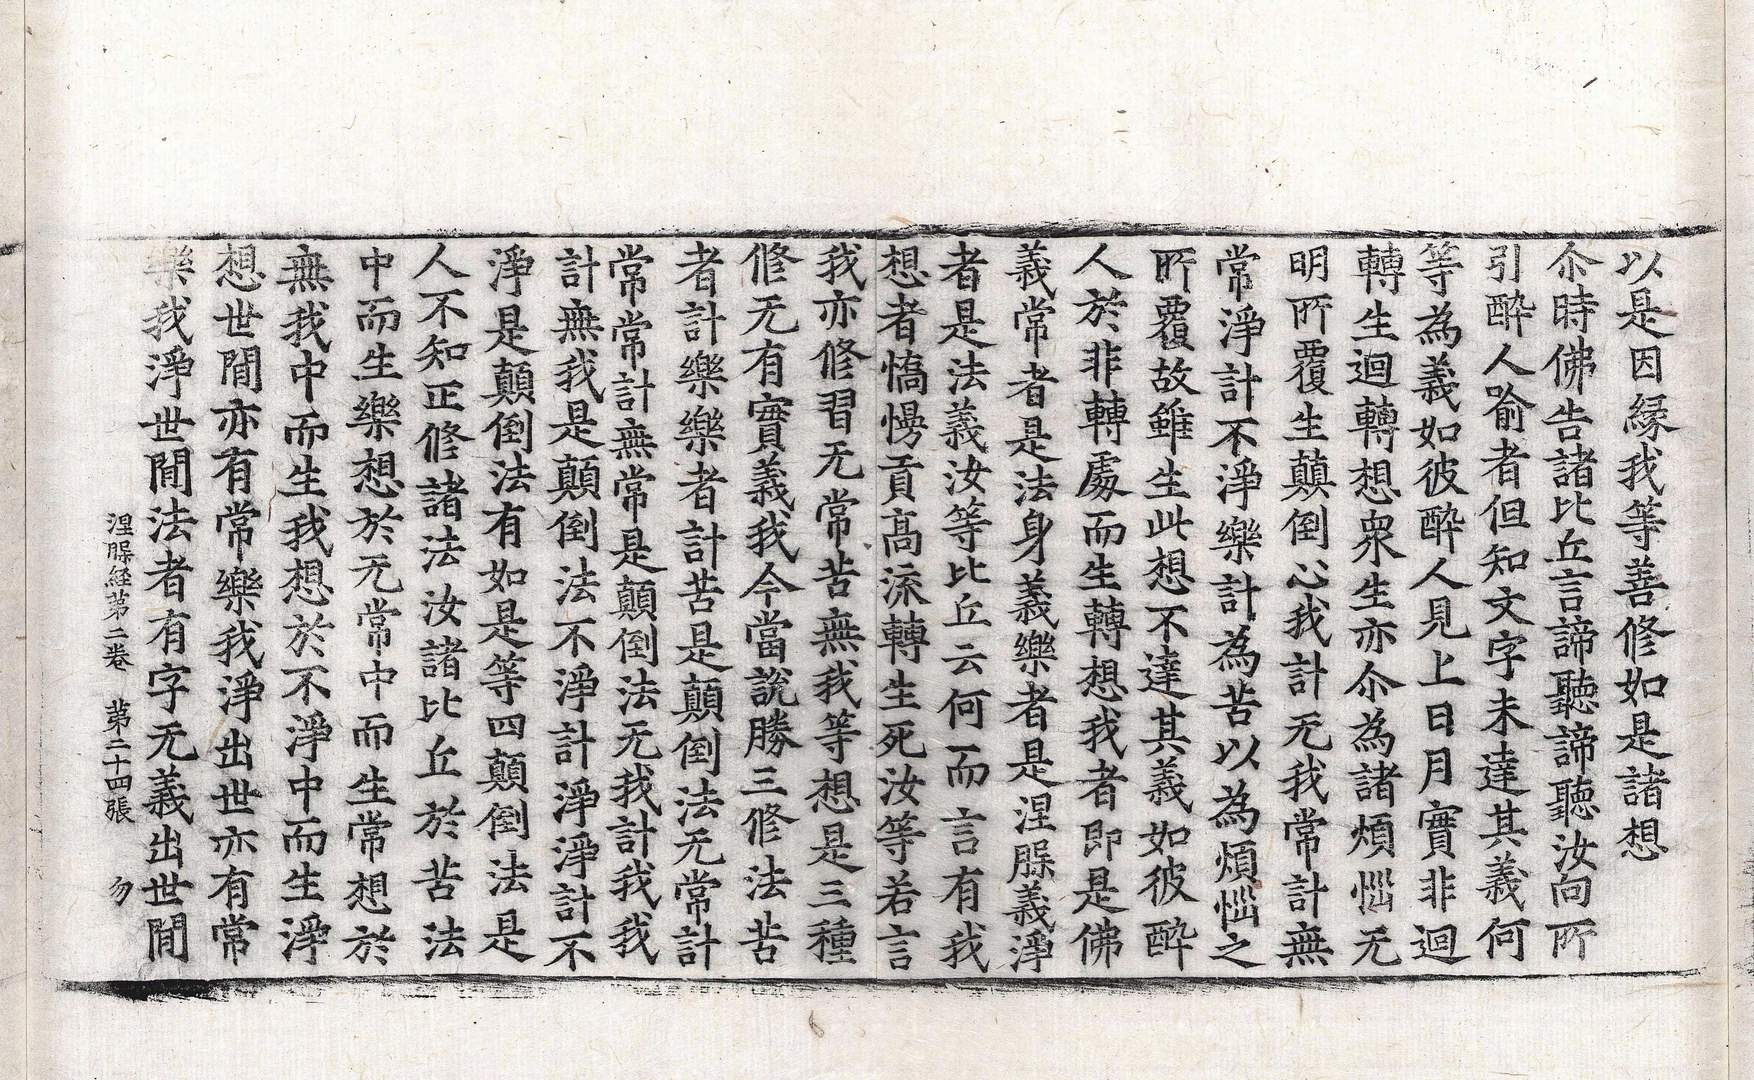 以是因緣我等善修如是諸想
尒時佛告諸比丘言諦聽諦聽汝向所
引醉人喻者但知文字未達其義何
等為義如彼醉人見上日月實非迴
轉生迴轉想衆生亦尒為諸煩惱无
明所覆生顛倒心我計无我常計無
常淨計不淨樂計為苦以為煩惱之
所覆故雖生此想不達其義如彼醉
人於非轉處而生轉想我者即是佛
義常者是法身義樂者是涅槃義淨
者是法義汝等比丘云何而言有我
想者憍慢貢高流轉生死汝等若言
我亦修習无常苦無我等想是三種
修无有實義我今當說勝三修法苦
者計樂樂者計苦是顛倒法无常計
常常計無常是顛倒法无我計我我
計無我是顛倒法不淨計淨淨計不
淨是顛倒法有如是等四顛倒法是
人不知正修諸法汝諸比丘於苦法
中而生樂想於无常中而生常想於
無我中而生我想於不淨中而生淨
想世間亦有常樂我淨出世亦有常
樂我淨世間法者有字无義出世間
涅槃経苐二卷 苐二十四張 勿